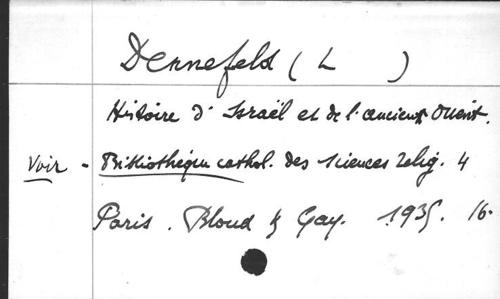 Dennefeld ( L )
Histoire d' Israël et de l'ancient Orient.
Voir - Bibliothèque cathol. des sciences relig. 4
Paris. Bloud & Gay. 1935. 16.